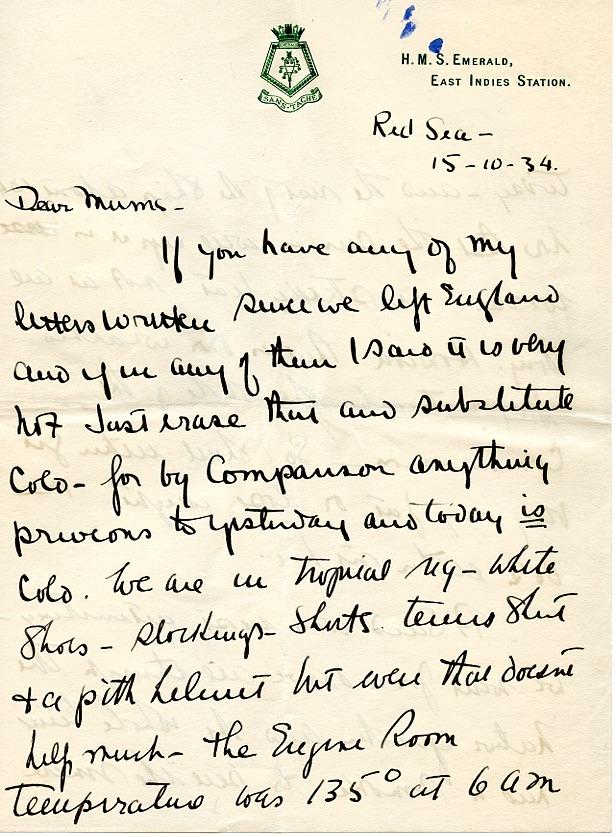 SANS-TACHE
H.M.S. EMERALD,
EAST INDIES STATION.
Red Sea -
15-10-34.
Dear Mums -
If you have any of my
letters written since we left England
and if in any of them I said it is very
hot just erase that and substitute
Cold - for by Comparison anything
previous to yesterday and today is
Cold. We are in tropical rig - white
Shoes - Stockings - Shorts. tennis Shirt
& a pith helmet but even that doesnt
help much - the Engine Room
temperature was 135° at 6 am